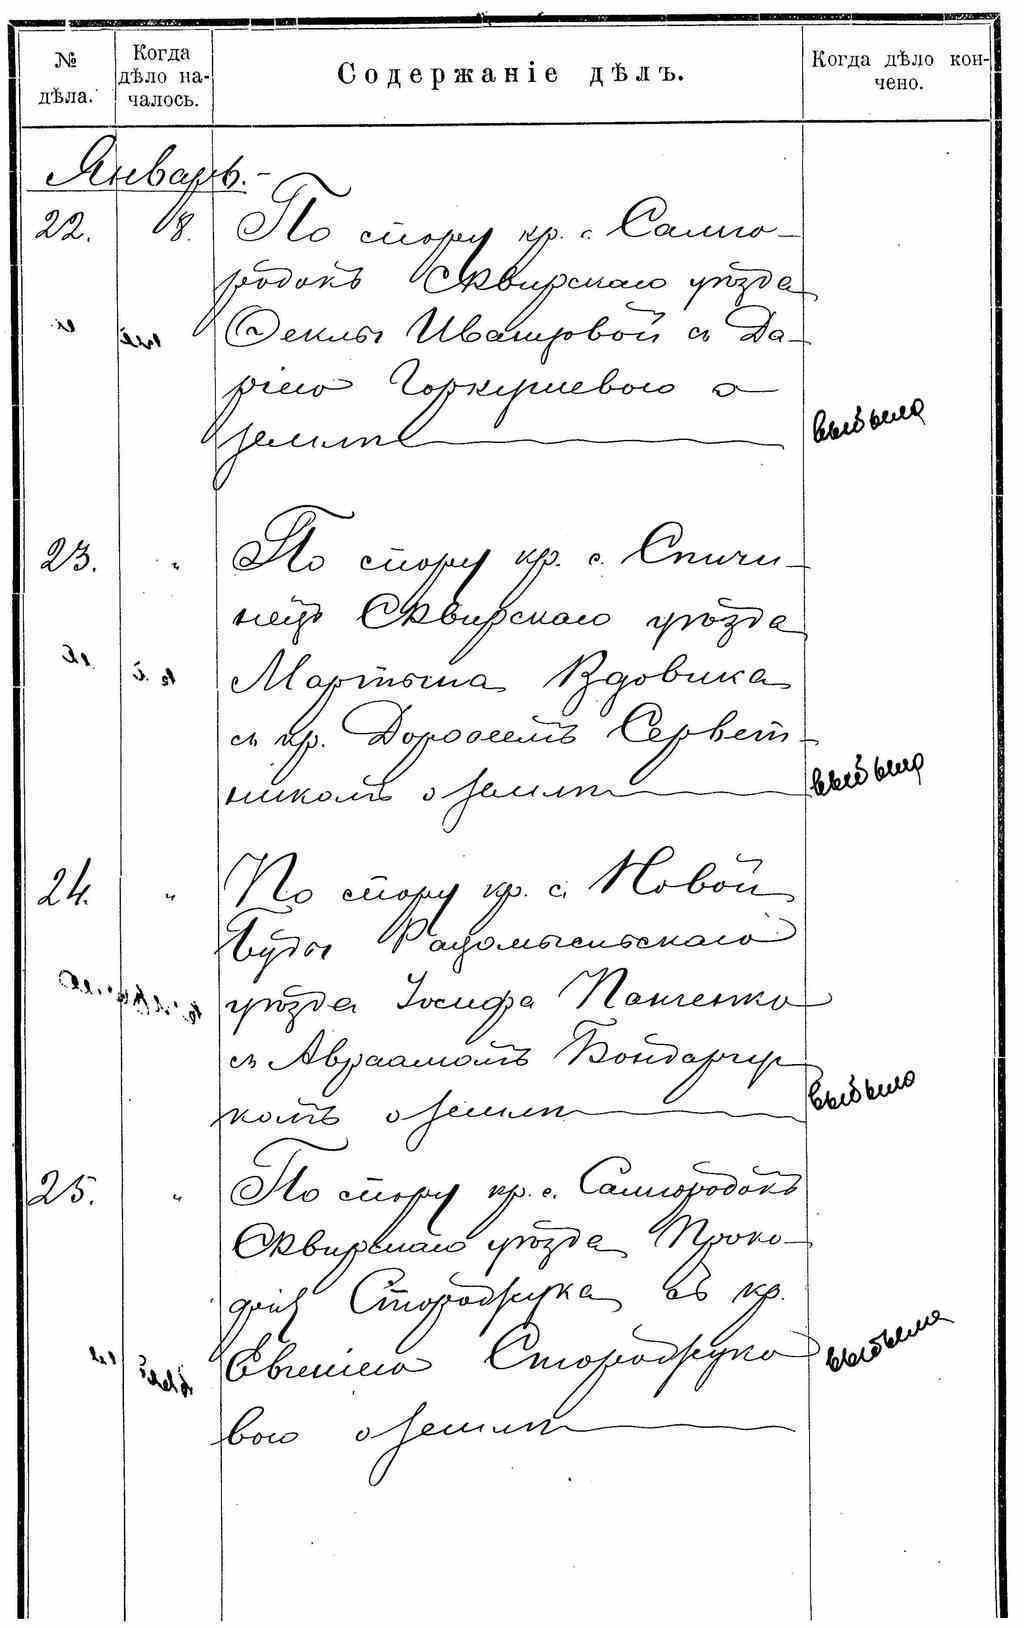 № дѣла.
Когда дѣло на-чалось.
Содержаніе дѣлъ.
Когда дѣло кон-чено.
Январь.-
22. 8. По спору кр. с. Самго-
родокъ Сквирскаго уѣзда
Ѳеклы Ивануровой съ Да-
ріею Горкушевою о
землѣ выбыло
23. " По спору кр. с. Спичи-
нецъ Сквирскаго уѣзда
Мартына Вдовика
съ кр. Дороѳеемъ Сервет-
никомъ о землѣ выбыло
24. " По спору кр. с. Новой
Буды Радомысльскаго
уѣзда Іосифа Панченко
съ Авраамомъ Бондарчу
комъ о землѣ выбыло
25. " По спору кр. с. Самгородокъ
Сквирскаго уѣзда Проко-
фія Стороджука съ кр.
Евгеніею Стороджуко
вою о землѣ выбыло